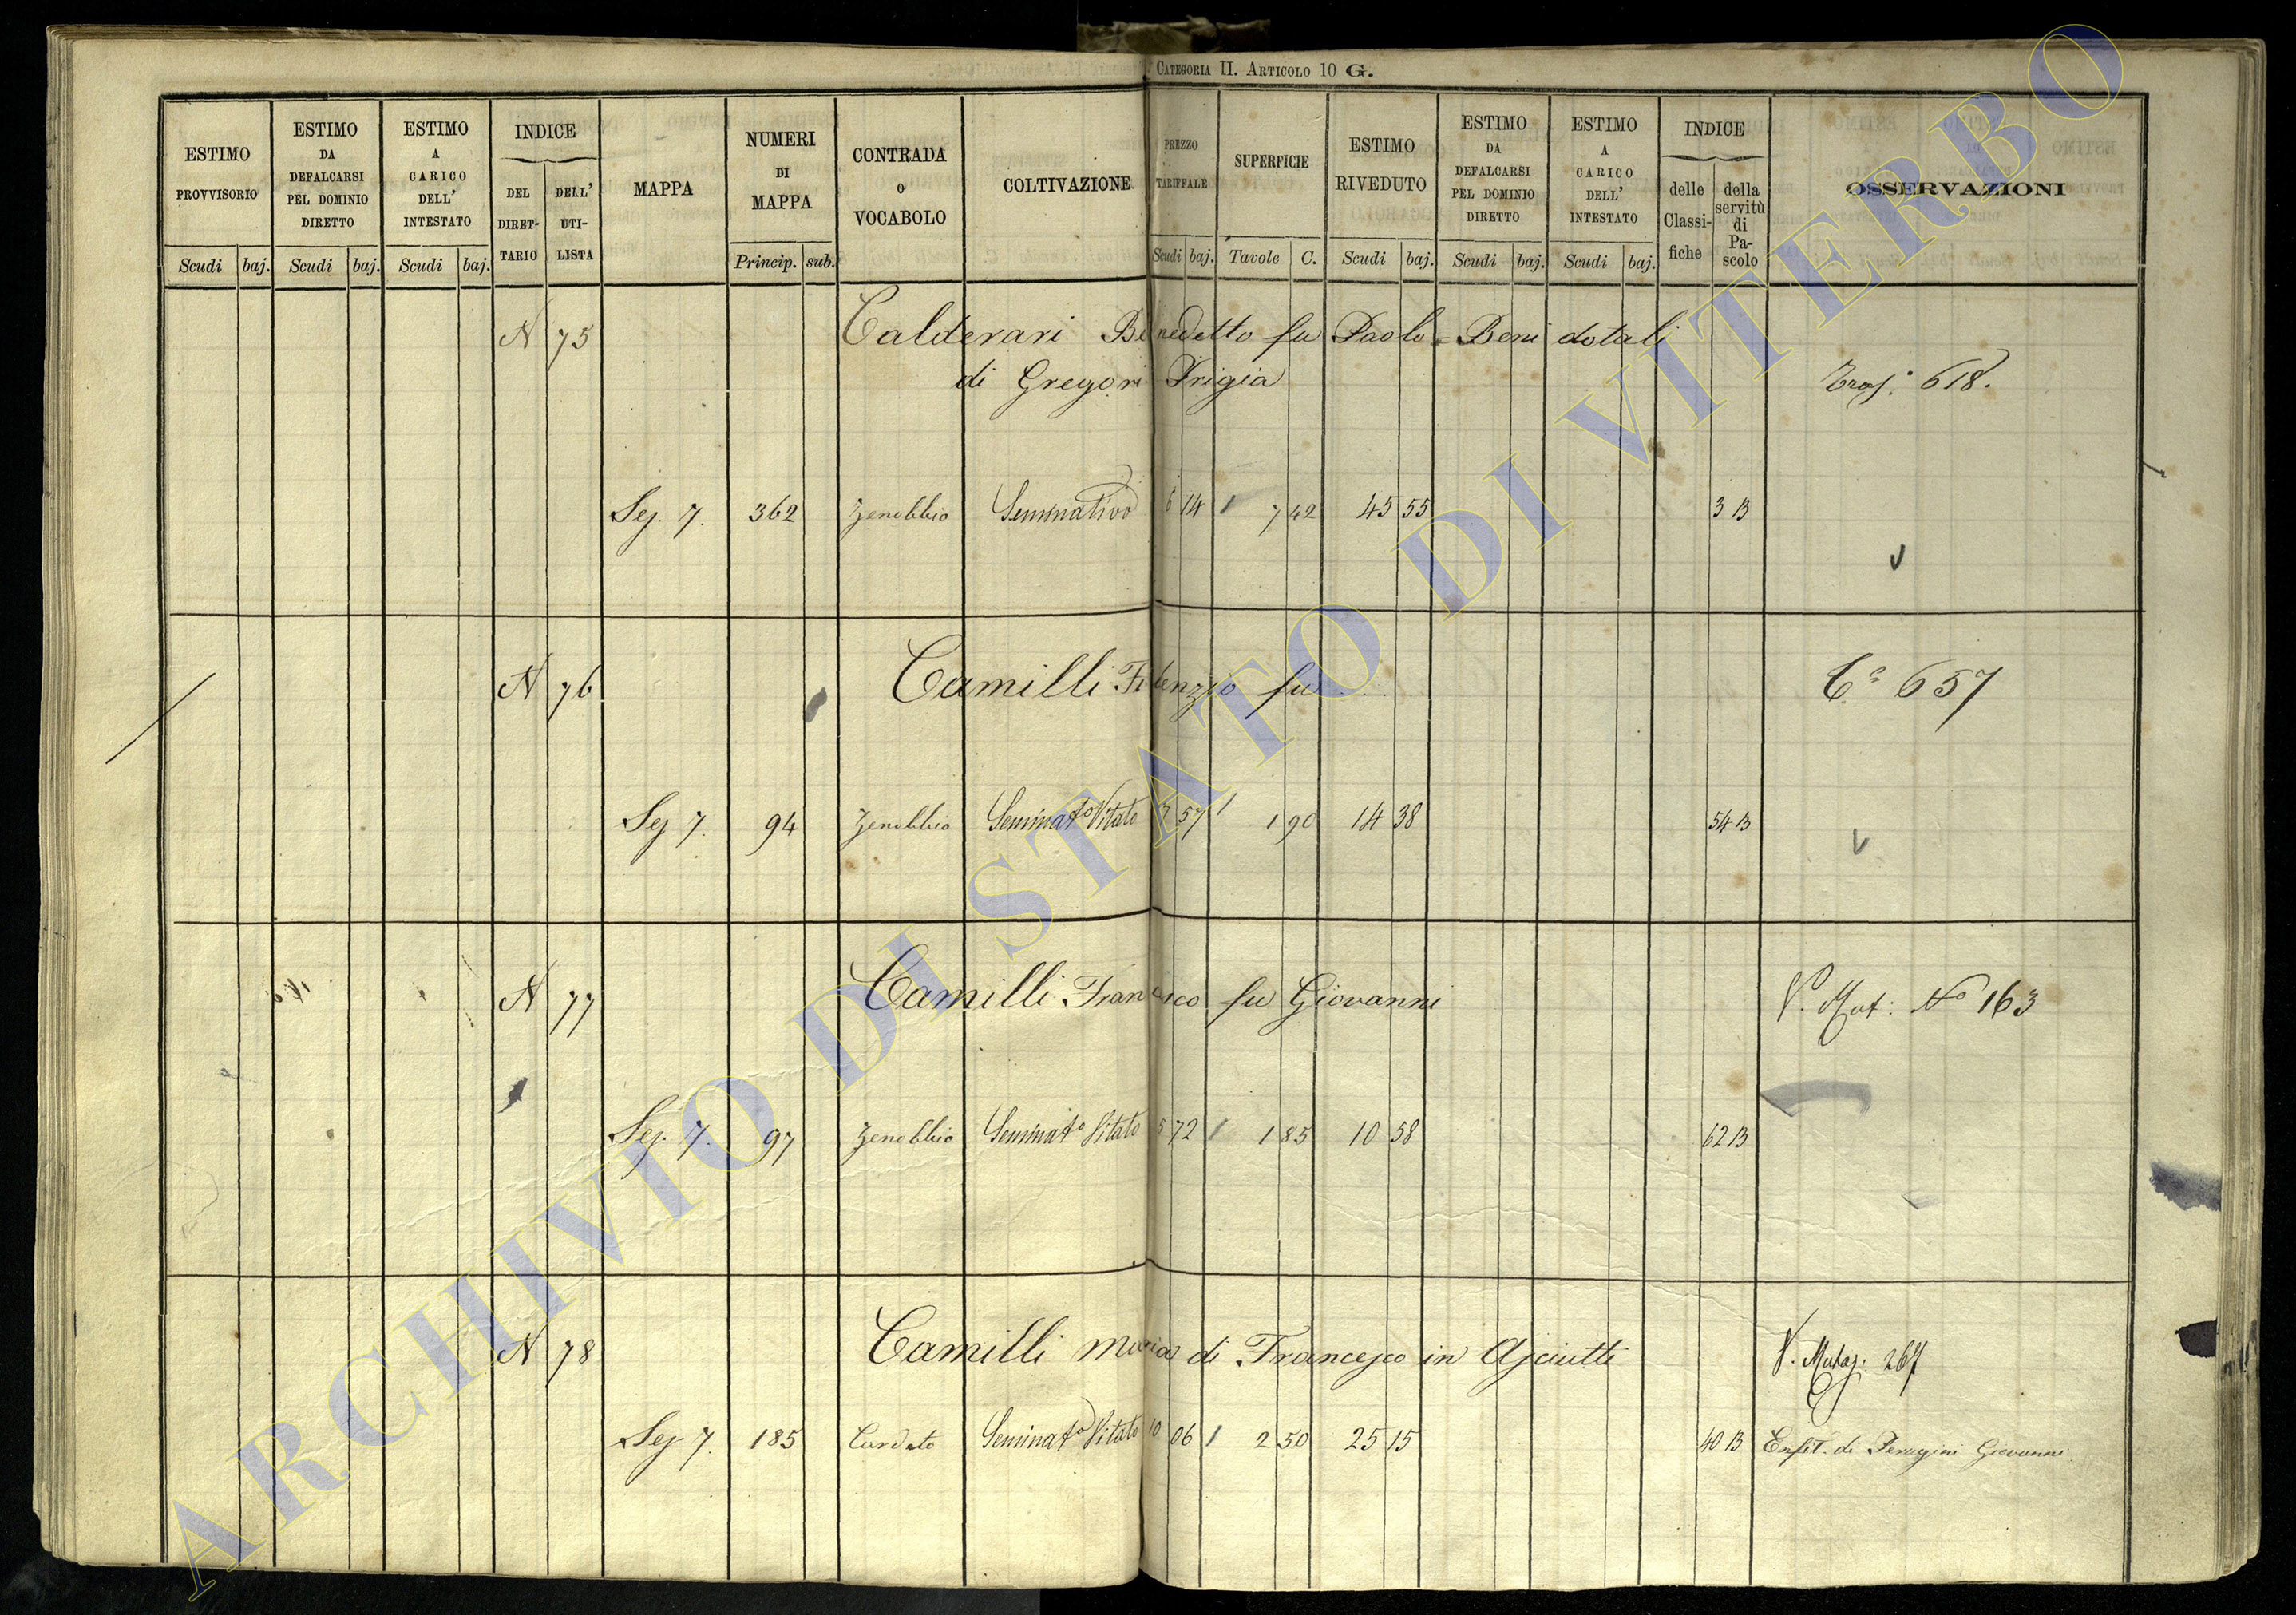 CATEGORIA II. ARTICOLO 10 G.
ESTIMO PROVVISORIO Scudi baj.
ESTIMO DA DEFALCARSI PEL DOMINIO DIRETTO Scudi baj.
ESTIMO A CARICO DELL' INTESTATO Scudi baj.
INDICE DEL DIRETTARIO DELL' UTILISTA
MAPPA
NUMERI DI MAPPA Princip. sub.
CONTRADA O VOCABOLO
COLTIVAZIONE
PREZZO TARIFFALE Scudi baj.
SUPERFICIE Tavole C.
ESTIMO RIVEDUTO Scudi baj.
ESTIMO DA DEFALCARSI PEL DOMINIO DIRETTO Scudi baj.
ESTIMO A CARICO DELL' INTESTATO Scudi baj.
INDICE delle Classifiche della servitù di Pascolo
OSSERVAZIONI
N 75 Calderari Benedetto fu Paolo = Beni dotali
di Gregori Frigia Tras: 618.
Sez. 7. 362 Zenobbio Seminativo 6 14 1 7 42 45 55 3 B
N 76 Camilli Fidenzio fu Ca 657
Sez 7. 94 Zenobbio Seminato Vitato 7 57 1 1 90 14 38 54 B
N 77 Camilli Francesco fu Giovanni V. Mut: No 163
Sez. 7. 97 Zenobbio Seminato Vitato 5 72 1 1 85 10 58 62 B
N 78 Camilli Maria di Francesco in Asciutti V. Mutaz: 267
Sez 7. 185 Cardeto Seminato Vitato 10 06 1 2 50 25 15 40 B Enfit. di Perugini Giovanni
ARCHIVIO DI STATO DI VITERBO